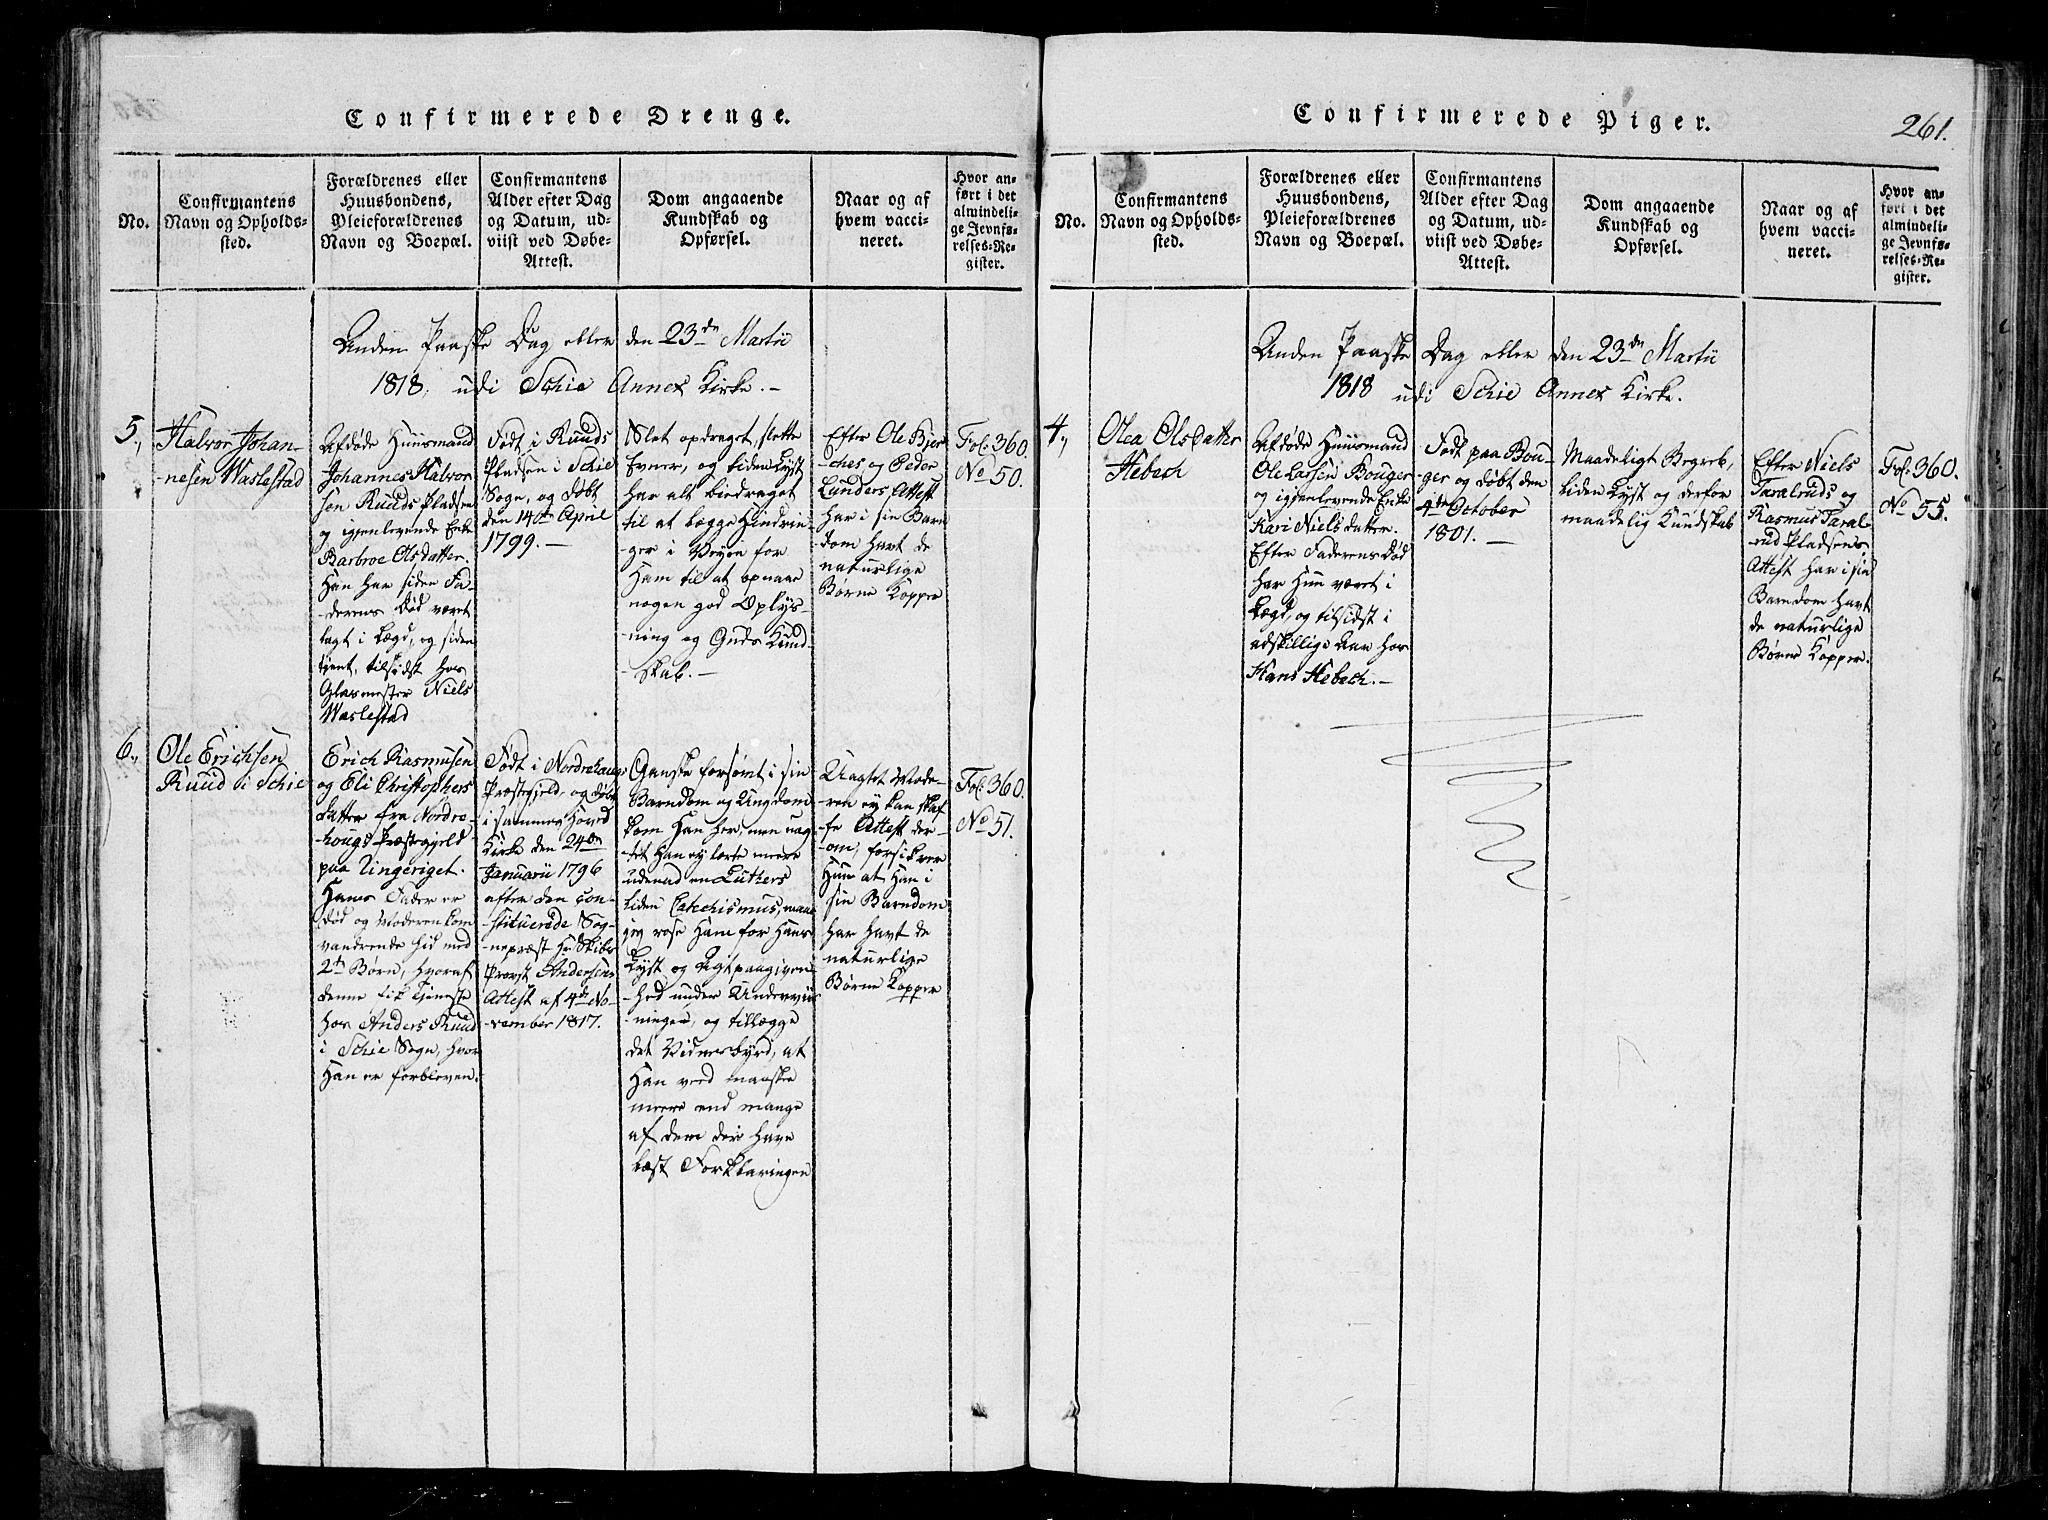 Confirmerede Drenge.
No.
Confirmantens
Navn og Opholds-
sted.
Forældrenes eller
Huusbondens,
Pleieforældrenes
Navn og Boepæl.
Confirmantens
Alder efter Dag
og Datum, ud-
viist ved Døbe-
Attest.
Dom angaaende
Kundskab og
Opførsel.
Naar og af
hvem vacci-
neret.
Hvor an-
ført i det
almindeli-
ge Jevnfø-
relses-Re-
gister.
Anden Paaske Dag eller den 23de Martii
1818, udi Schie Annex Kirke. -
5.,
Halvor Johan-
-nesen Waslestad
Afdøde Huusmand
Johannes Halvor
sen Ruuds Pladsen
og igjenlevende Enke
Barbroe Olsdatter.
Han har siden Fa-
-derens Død været
lagt i Lægd, og siden
tjent, tilsidst hos
Glasmester Niels
Waslestad
Født i Ruuds
Pladsen i Schie
Sogn, og døbt
den 14de April
1799. -
Slet opdraget, slette
Evner, og liden Lyst
har alt bidraget
til at lægge Hindrin-
-ger i Veyen for
Ham til at opnaae
nogen god Oplys-
-ning og Guds Kund-
-skab. -
Efter Ole Bjer-
-ches og Peder
Lunders Attest
har i sin Barn
dom havt de
naturlige
Børne Kopper
Fol: 360.
No 50.
6.,
Ole Erichsen
Ruud i Schie
Erich Rasmusen
og Eli Christophers
datter fra Nordre-
-hougs Præstegjeld
paa Ringeriget.
Hans Fader er
død og Moderen kom
vandrende hid med
2de Børn, hvoraf
denne fik Tjeneste
hos Anders Ruud
i Schie Sogn, hvor
Han er forbleven.
Født i Nordrehougs
Præstegjeld, og døbt
i sammes Hoved
Kirke den 24de
Januarii 1796
efter den con-
-stituerede Sog-
-nepræst Hr Skibs
Prævst Andersens
Attest af 4de No-
-vember 1817.
Ganske forsømt i sin
Barndom og Ungdom
kom Han her, men uag-
-tet Han ey lærte meere
udenad en Luthers
liden Catechismus, maae
jeg rose Ham for Hans
Lyst og Agtpaagiven-
-hed under Underviis
-ningen, og tillægge
det Vidnesbyrd, at
Han veed maaskee
meere end mange
af dem der have
læst Forklaringen
Uagtet Mode-
-ren ey kan skaf-
-fe Attest der-
-om, forsikrer
Hun at Han i
sin Barndom
har havt de
naturlige
Børne Kopper
Fol: 360.
No 51.
Confirmerede Piger.
261.
No.
Confirmantens
Navn og Opholds-
sted.
Forældrenes eller
Huusbondens,
Pleieforældrenes
Navn og Boepæl.
Confirmantens
Alder efter Dag
og Datum, ud-
viist ved Døbe-
Attest.
Dom angaaende
Kundskab og
Opførsel.
Naar og af
hvem vacci-
neret.
Hvor an-
ført i det
almindeli-
ge Jevnfø-
relses-Re-
gister.
Anden Paaske Dag eller den 23de Martii
1818 udi Schie Annex Kirke.
4.,
Olea Olsdatter
Hebech
Afdøde Huusmand
Ole Larsen Bouger
og igjenlevende Enke
Kari Nielsdatter.
Efter Faderens Død
har Hun været i
Lægd, og tilsidst i
adskillige Aar hos
Hans Hebech. -
Født paa Bou-
-ger og døbt den
4de October
1801. -
Maadeligt Begreb,
liden Lyst og derfor
maadelig Kundskab
Efter Niels
Taralruds og
Rasmus Taral-
-rud Pladsens
Attest har i sin
Barndom havt
de naturlige
Børne Kopper.
Fol: 360.
No 55.